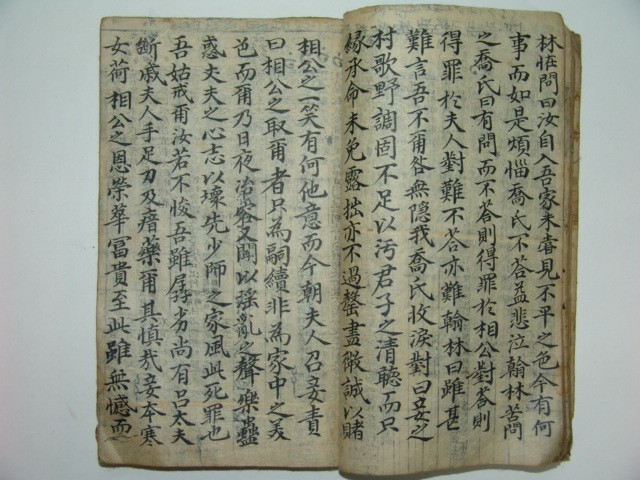 林恠問曰汝自入吾家未嘗見不平之色今有何
事而如是煩惱喬氏不荅益悲泣翰林苦問
之喬氏曰有問而不荅則得罪於相公對荅則
得罪於夫人對難不荅亦難翰林曰雖甚
難言吾不爾咎無隱我喬氏收淚對曰妾之
村歌野調固不足以汚君子之清聽而只
緣承命未免露拙亦不過罄盡微誠以賭
相公之一笑有何他意而今朝夫人召妾責
曰相公之取爾者只為嗣續非為家中之美
色而爾乃日夜治容又聞以淫亂之聲樂蠱
惑丈夫之心志以壞先少師之家風此死罪也
吾姑戒爾汝若不悛吾雖孱劣尚有呂太夫
斷戚夫人手足刀及瘖藥爾其慎哉妾本寒
女荷相公之恩榮華冨貴至此雖無憾而